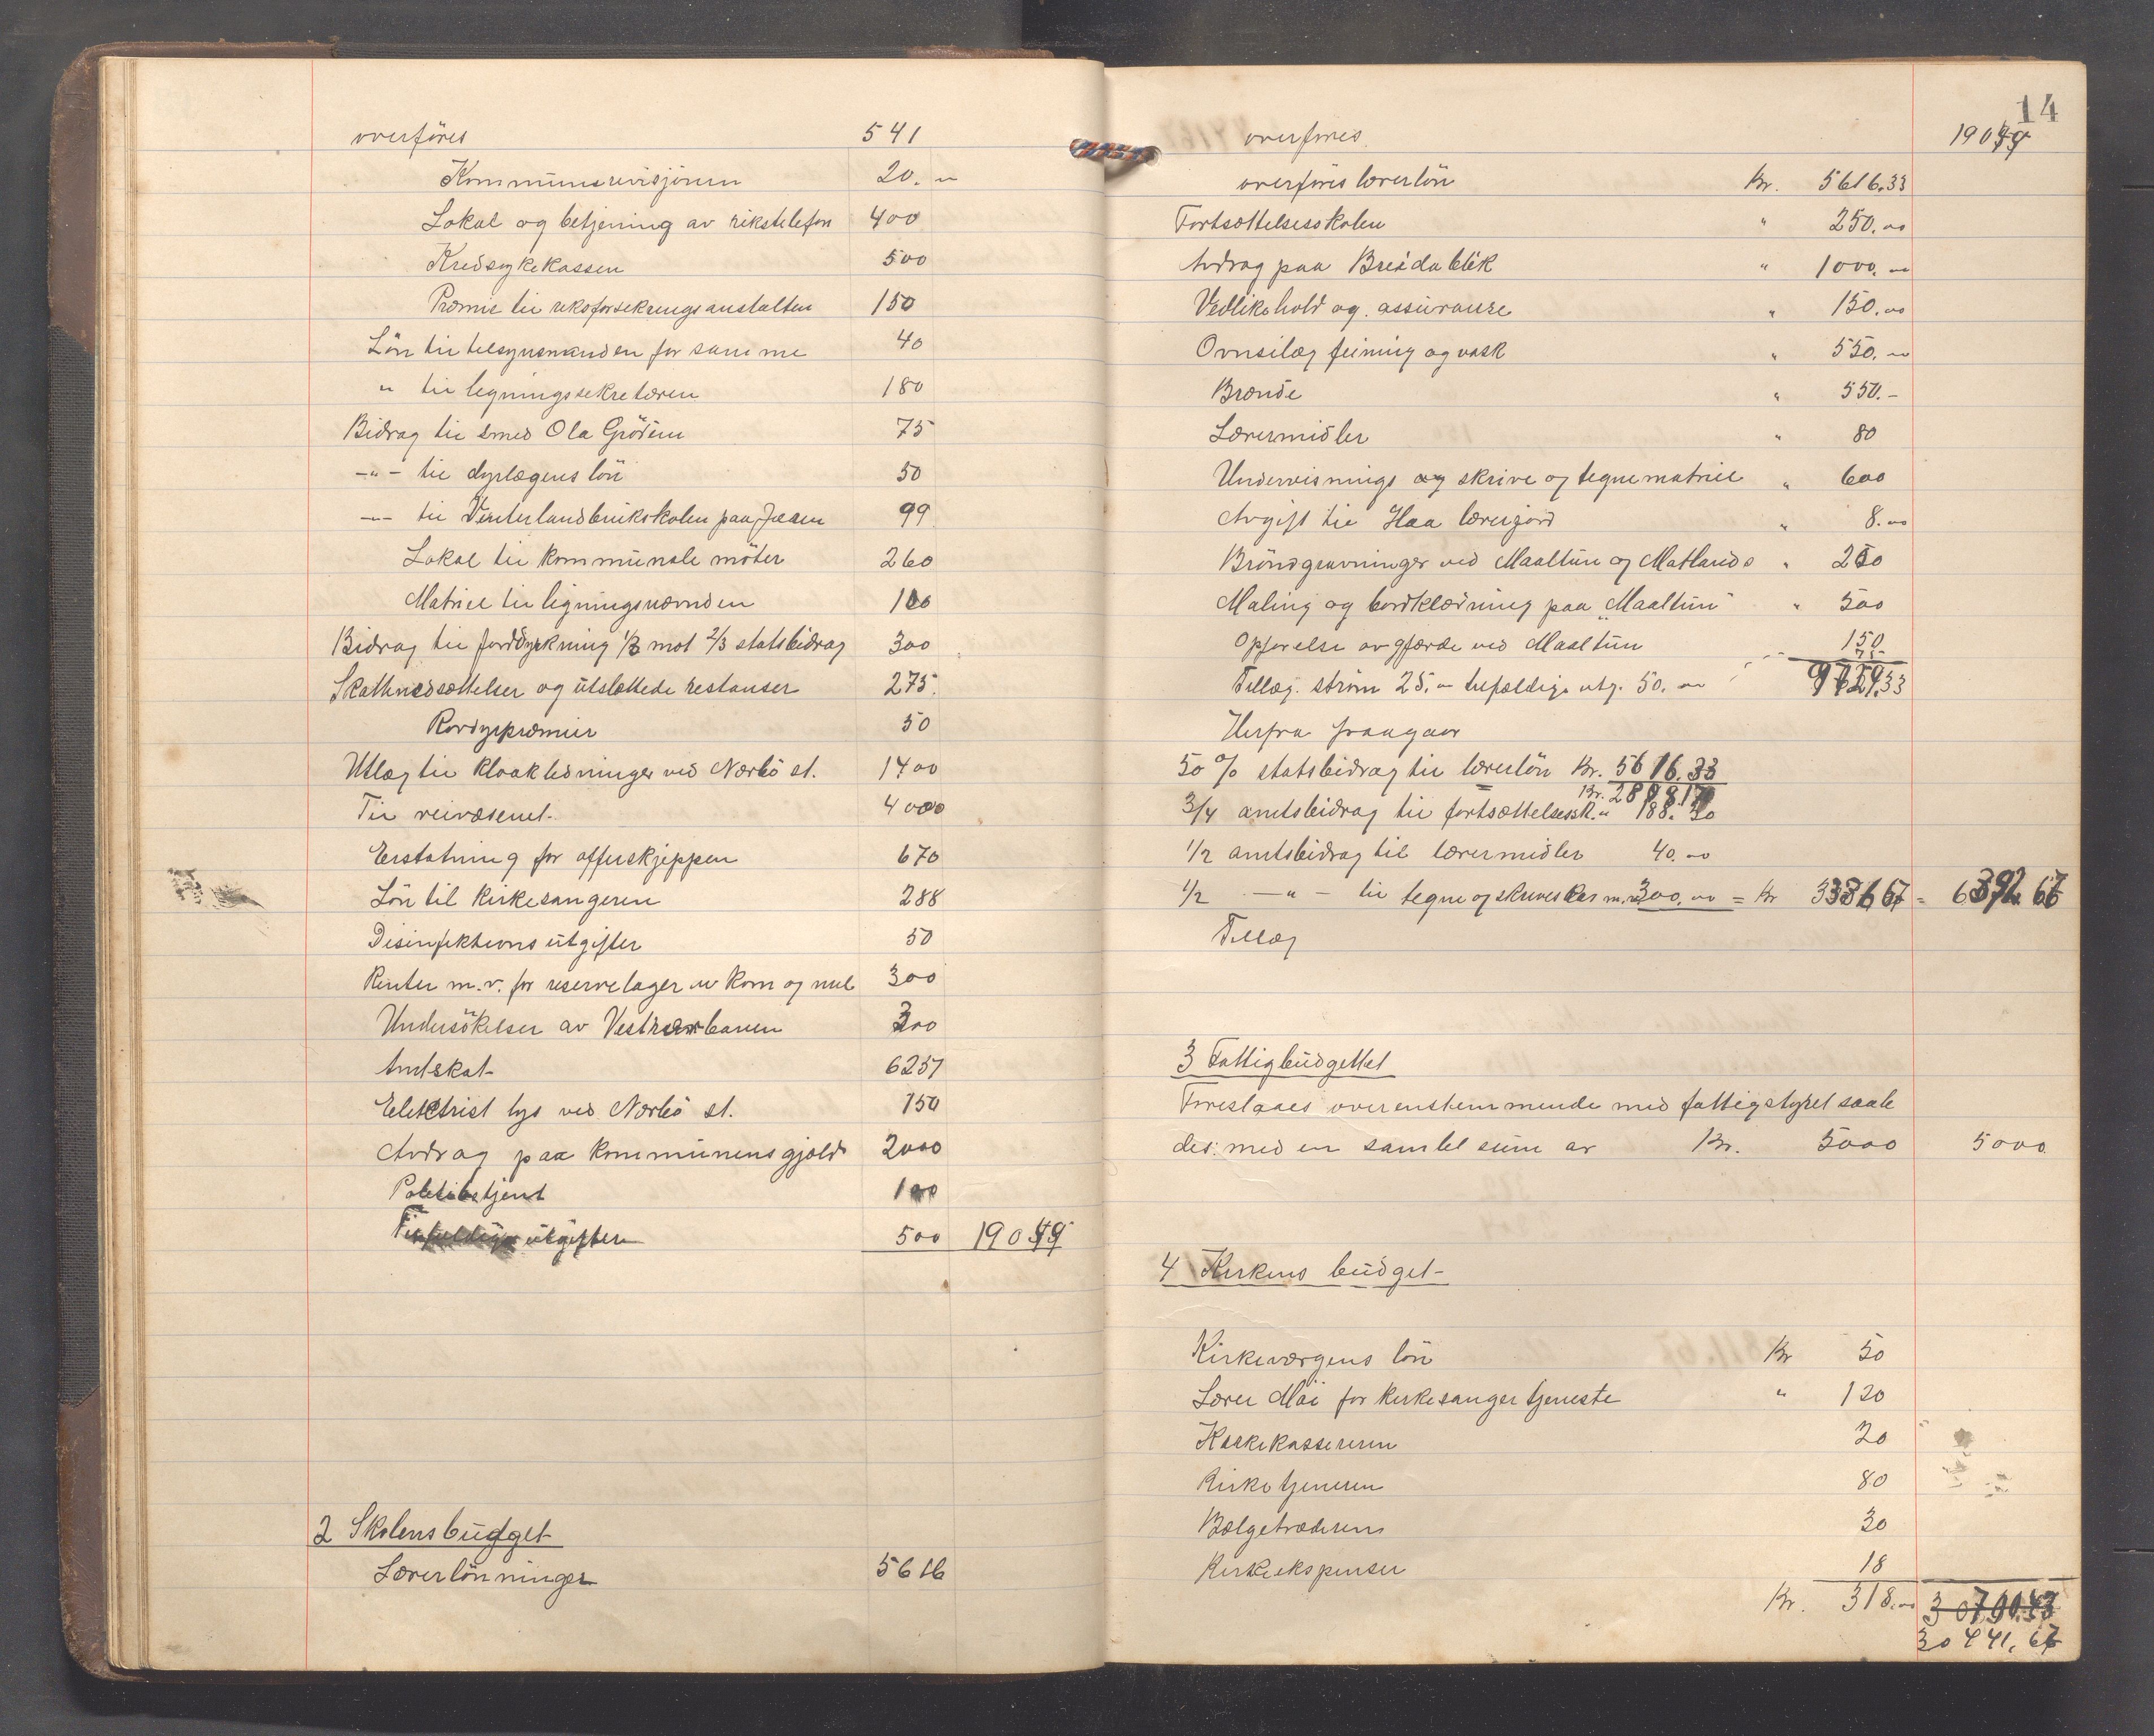 overföres 541
Kommunerevisjonen 20. "
Lokal og betjening av rikstelefon 400
Kredsykekassen 500
Præmie til riksforsekringsanstalten 150
Lön til tilsynsmanden for samme 40
" til legningssekretæren 180
Bidrag til smed Ola Grödem 75
-"- til dyrlægens lön 50
-"- til Vinterlandbrukskolen paa Jæren 99
Lokal til kommunale möter 260
Matriel til ligningsnævnden 100
Bidrag til jorddyrkning 1/3 mot 2/3 statsbidrag 300
Skattnedsættelser og utslettede restanser 275.
Rovdyrpræmier 50
Utlæg til kloakledninger ved Nærbö st. 1400
Til veivæsenet 4000
Erstatning for offerskjeppen 670
Lön til kirkesangeren 288
Disinfektionsutgifter 50
Renter m.v. for reservelager av korn og mel 300
Undersökelser av Vestbanen 300
Amtskat 6257
Elektrist lys ved Nærbö st. 150
Avdrag paa kommunens gjæld 2000
Politibetjent 100
Tilfeldige utgifter 500 19049
2 Skolens budget
Lærerlönninger 5616
14
overföres 19049
overföris lærerlön Kr. 5616.33
Fortsættelsesskolen " 250.00
Avdrag paa Breidablik " 1000.00
Vedlikehold og assuranse " 150.00
Ovnsilæg feining og vask " 550.00
Brænde " 550.-
Lærermidler " 80
Undervisnings og skrive og tegnematriel " 600
Avgift til Haa lærerjord " 8.00
Bröndgravninger ved Maaltun og Matlands " 250
Maling og bordklædning paa "Maaltun" " 500
Opförelse av gjærde ved Maaltun 150
75-
Tillæg. ström 25.00 tilfældige utg. 50.00 9729.33
Herfra fraagaar
50 % statsbidrag til lærerlön Kr. 5616.33
Kr. 2808.17
3/4 amtsbidrag til fortsættelsessk. " 188.30
1/2 amtsbidrag til lærermidler 40.00
1/2 -"- til tegne og skrivesker m.v. 300.00 = Kr 3336.67 = 6392.67
Tillæg
3 Fattigbudgettet
Foreslaaes overenstemmende med fattigstyret saale
des: med en samlet sum av Kr. 5000 5000
4 Kirkens budget
Kirkeværgens lön Kr 50
Lærer Moi for kirkesanger tjeneste " 120
Kirkekassereren 20
Kirketjeneren 80
Bælgetræderens 30
Kirkeekspenser 18
Kr. 318.00
30441.67